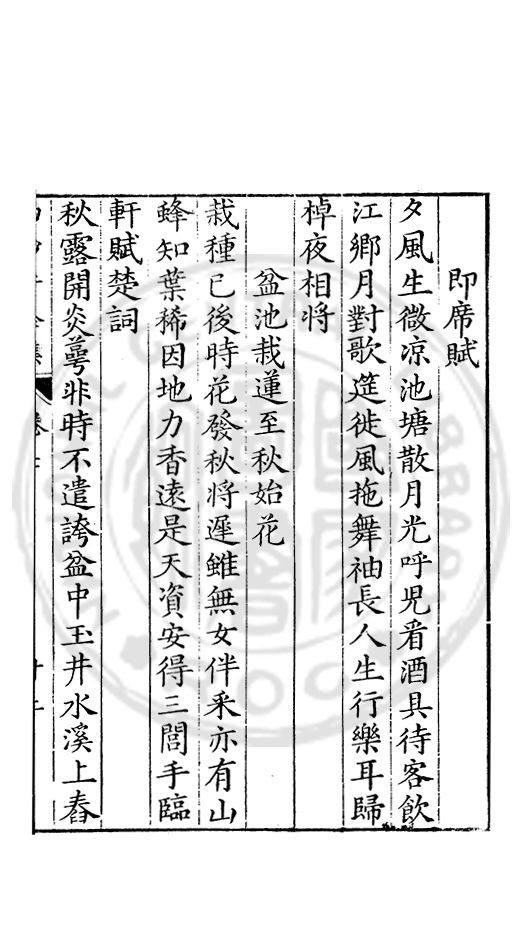 即席賦
夕風生微凉池塘散月光呼児看酒具待客飲
江鄉月對歌筵徙風拖舞袖長人生行樂耳歸
棹夜相將
盆池栽蓮至秋始花
栽種已後時花發秋將遲雖無女伴釆亦有山
蜂知葉稀因地力香遠是天資安得三閭手臨
軒賦楚詞
秋露開炎萼非時不遣誇盆中玉井水溪上春